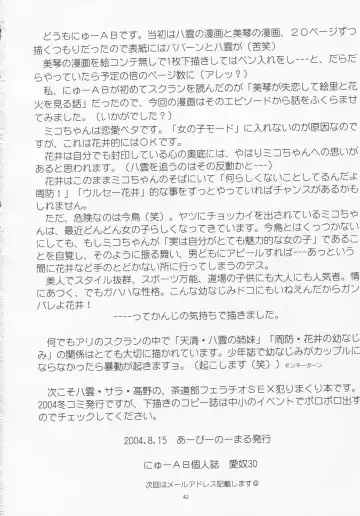 どうもにゅーＡＢです。当初は八雲の漫画と美琴の漫画、２０ページずつ
描くつもりだったので表紙にはババーンと八雲が（苦笑）
美琴の漫画を絵コンテ無しで1枚下描きしてはペン入れし…と、だらだ
らやっていたら予定の倍のページ数に（アレッ？）
私、にゅーＡＢが初めてスクランを読んだのが「美琴が失恋して絵里と花
火を見る話」だったので、今回の漫画はそのエピソードから話をふくらませ
てみました。（いかがでした？）
ミコちゃんは恋愛ベタです。「女の子モード」に入れないのが原因なので
すが、これは花井的にはＯＫです。
花井は自分でも封印している心の奥底には、やはりミコちゃんへの思いが
あると思われます。（八雲を追うのはその反動かと…）
花井はこのままミコちゃんのそばにいて「何らしくないことしてるんだよ
周防！」「ウルセー花井！」的な事をずっとやっていればチャンスがあるかも
しれません。
ただ、危険なのは今鳥（笑）。ヤツにチョッカイを出されているミコちゃ
んは、最近どんどん女の子らしくなってきています。今鳥とはくっつかない
にしても、もしミコちゃんが「実は自分がとても魅力的な女の子」であること
を自覚し、そのように振る舞い、男どもにアピールすれば…あっという
間に花井など手のとどかない所に行ってしまうのデス。
美人でスタイル抜群、スポーツ万能、道場の子供にも大人にも人気者。情
にあつく、でもガハハな性格。こんな幼なじみドコにもいねえんだからガン
バレよ花井！
----ってかんじの気持ちで描きました。
何でもアリのスクランの中で「天満・八雲の姉妹」「周防・花井の幼なじ
み」の関係はとても大切に描かれています。少年誌で幼なじみがカップルに
ならなかったら暴動が起きまっョ。（起こします（笑））モンキーターン
次こそ八雲・サラ・高野の、茶道部フェラチオＳＥＸ犯りまくり本です。
2004冬コミ発行ですが、下描きのコピー誌は中小のイベントでボロボロ出す
のでチェックしてください。
2004.8.15　あーびーのーまる発行
にゅーＡＢ個人誌　愛奴30
次回はメールアドレス記載します＠
42